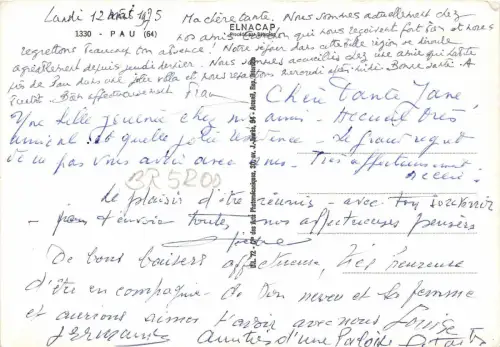 Lundi 12 1975 Ma chère tante. Nous sommes actuellement chez
ELNACAP
1330 - PAU (64)
nos amis qui nous reçoivent fort bien et nous
regrettons beaucoup ton absence! Notre séjour dans cette belle région se déroule
agréablement depuis jeudi dernier. Nous sommes accueillis chez une amie qui habite
près de Pau dans une jolie villa et nous repartirons mercredi après-midi. Bonne santé. A
bientôt. Bien affectueusement
Chère Tante Jane
Une belle journée chez nos amis - Accueil très
amical et quelle jolie résidence - Le grand regret
de ne pas vous avoir avec nous - Très affectueusement
CR5200
Le plaisir d'être réunis - avec ton souvenir
pour t'envoyer toutes nos affectueuses pensées
De bons baisers affectueux, très heureuse
d'être en compagnie de ton neveu et sa femme
et aurions aimé t'avoir avec nous Louise
Germaine d'une Paloise